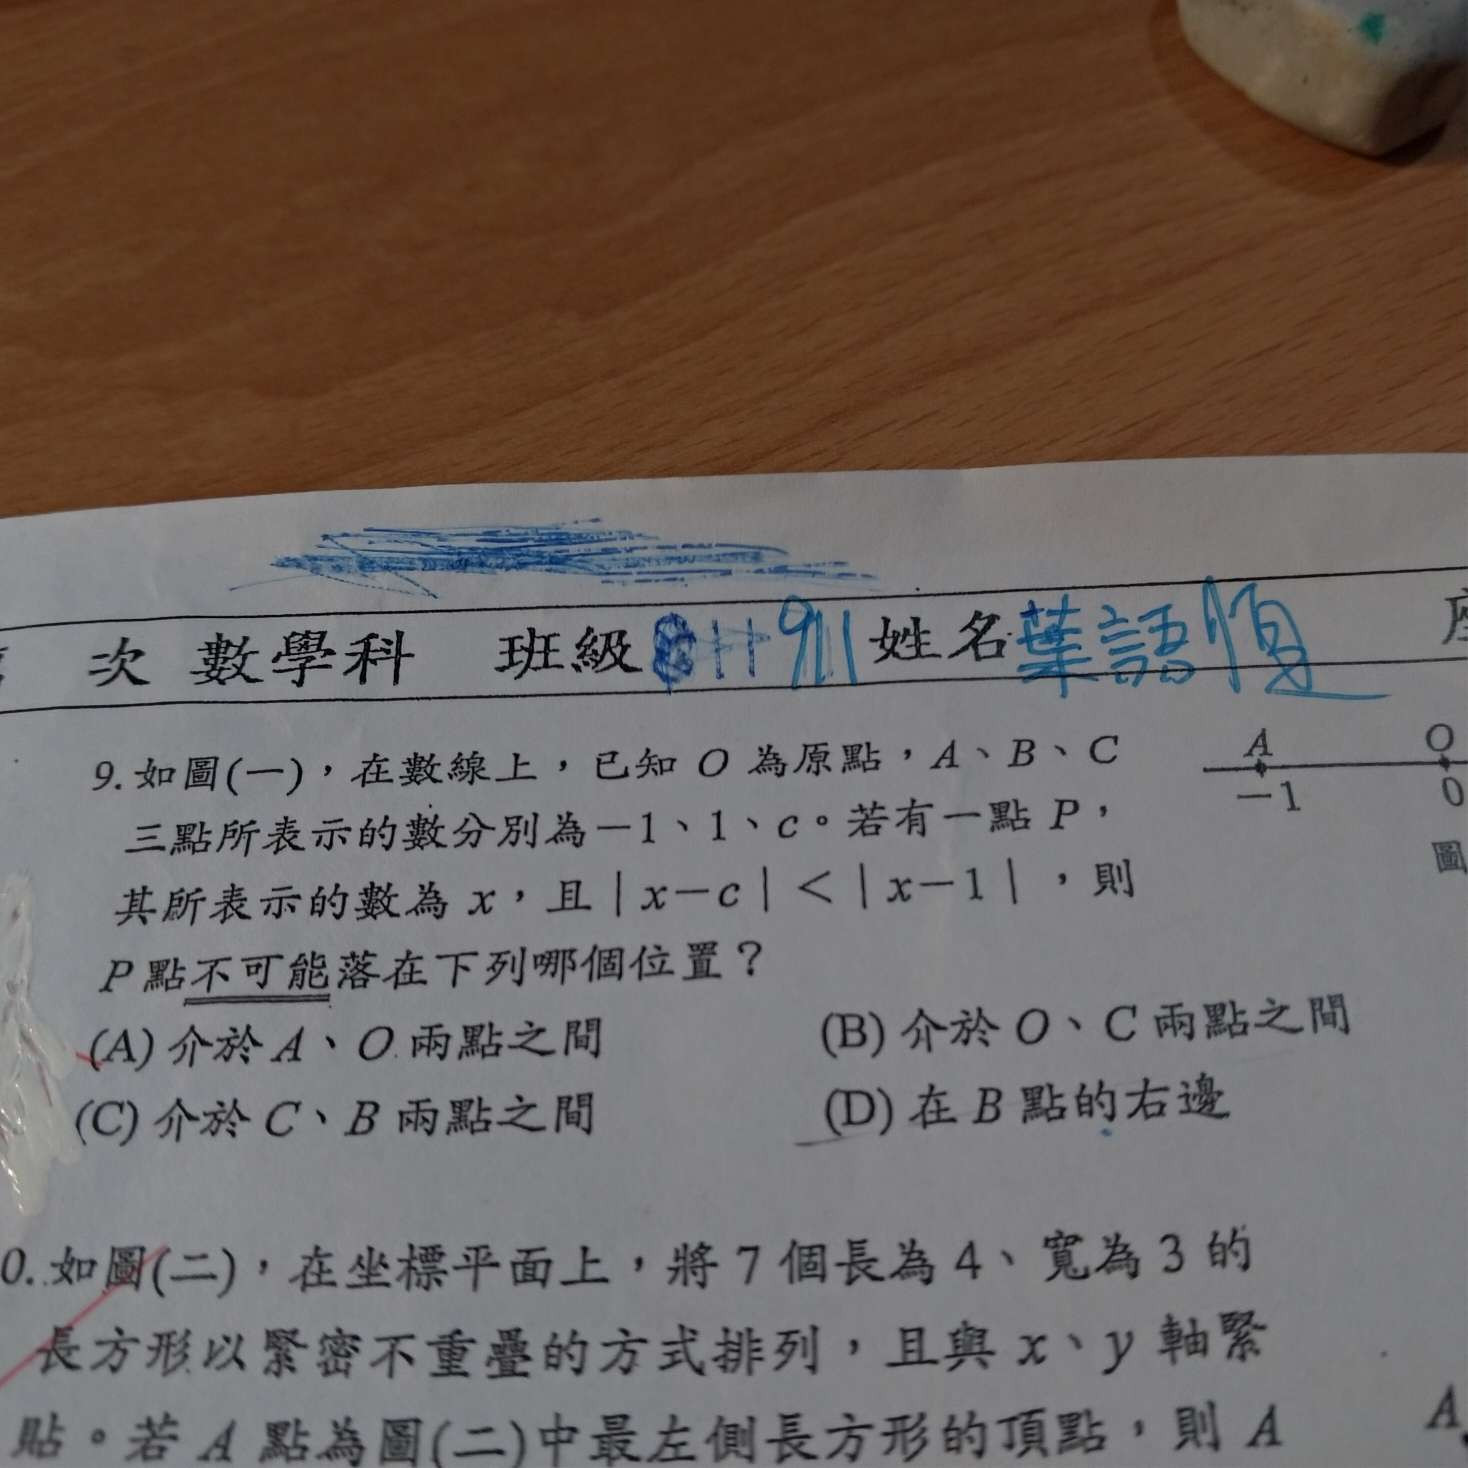 次 數學科 班級 911 姓名 葉語恆
9. 如圖(一)，在數線上，已知 O 為原點，A、B、C
三點所表示的數分別為－1、1、c。若有一點 P，
其所表示的數為 x，且｜x－c｜＜｜x－1｜，則
P 點不可能落在下列哪個位置？
(A) 介於 A、O 兩點之間 (B) 介於 O、C 兩點之間
(C) 介於 C、B 兩點之間 (D) 在 B 點的右邊
A O
－1 0
圖
0. 如圖(二)，在坐標平面上，將 7 個長為 4、寬為 3 的
長方形以緊密不重疊的方式排列，且與 x、y 軸緊
貼。若 A 點為圖(二)中最左側長方形的頂點，則 A
A